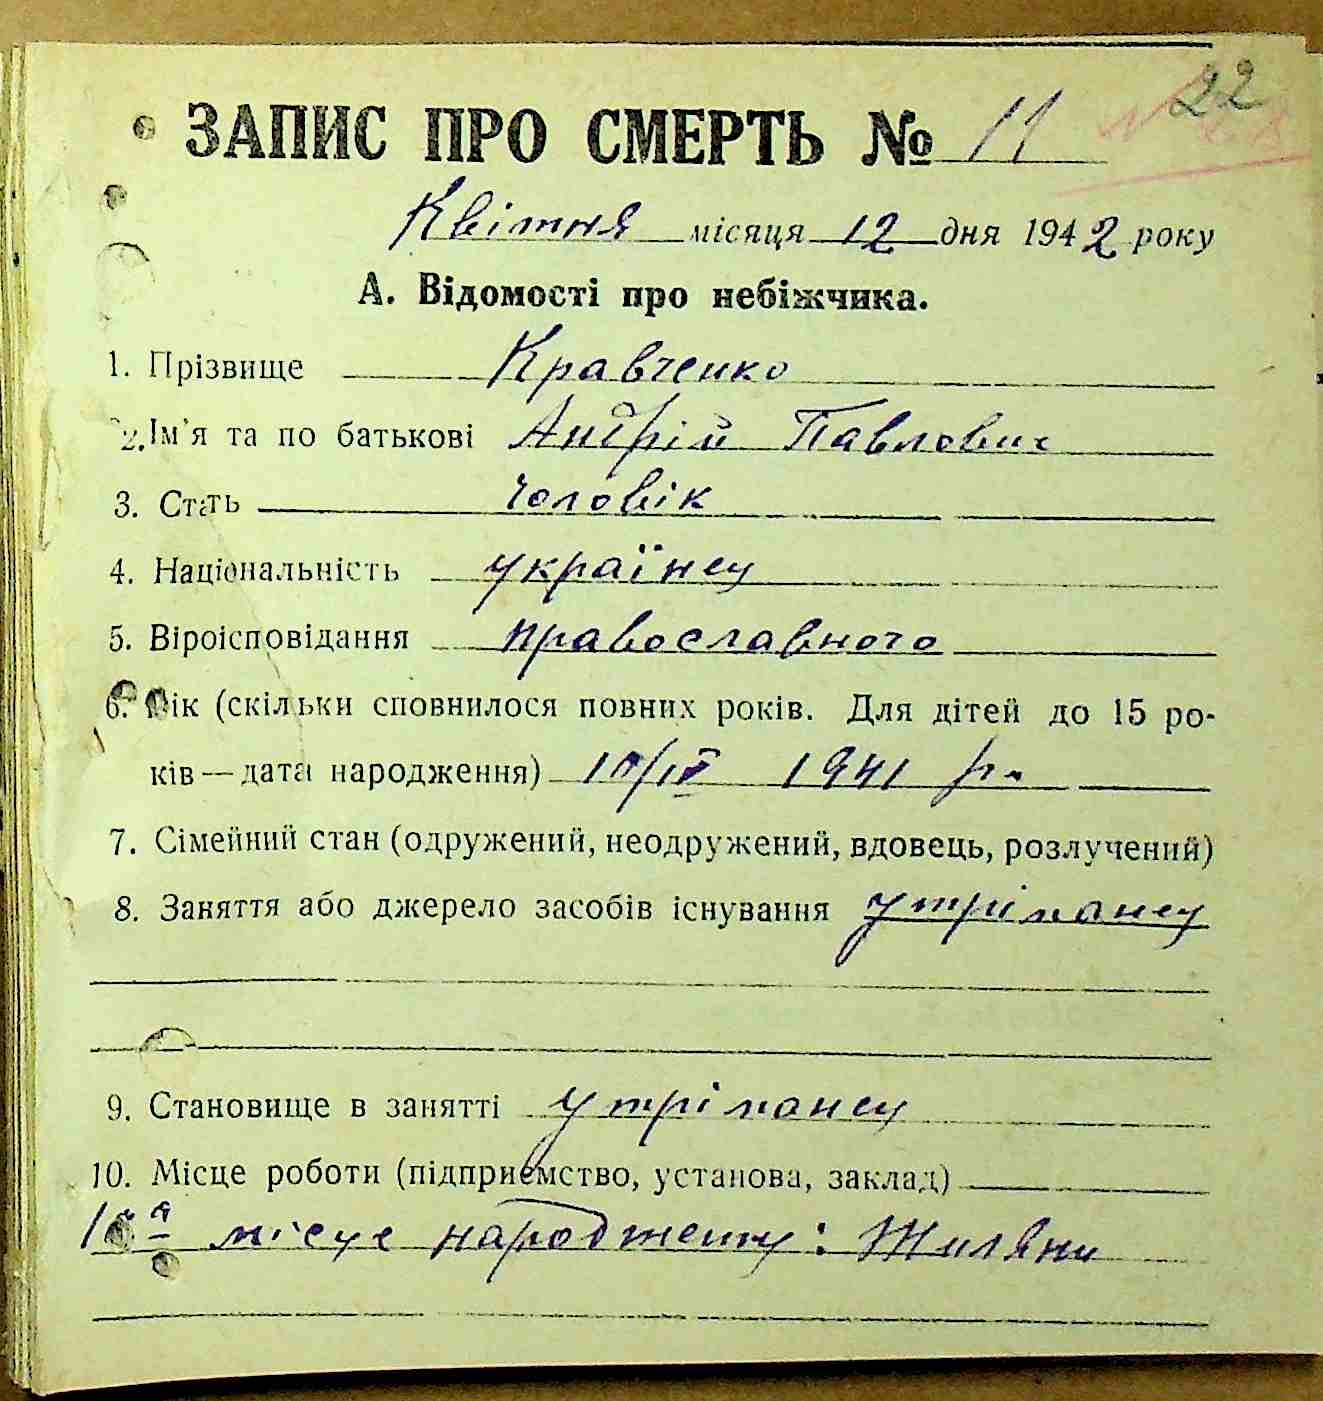 22
ЗАПИС ПРО СМЕРТЬ № 11
Квітня місяця 12 дня 1942 року
А. Відомості про небіжчика.
1. Прізвище Кравченко
2. Ім'я та по батькові Андрій Павлович
3. Стать чоловік
4. Національність українец
5. Віроісповідання православного
6. Вік (скільки сповнилося повних років. Для дітей до 15 ро-
ків — дата народження) 10/IV 1941 р.
7. Сімейний стан (одружений, неодружений, вдовець, розлучений)
8. Заняття або джерело засобів існування утріманец
9. Становище в занятті утріманец
10. Місце роботи (підприємство, установа, заклад)
10а місце народженну: